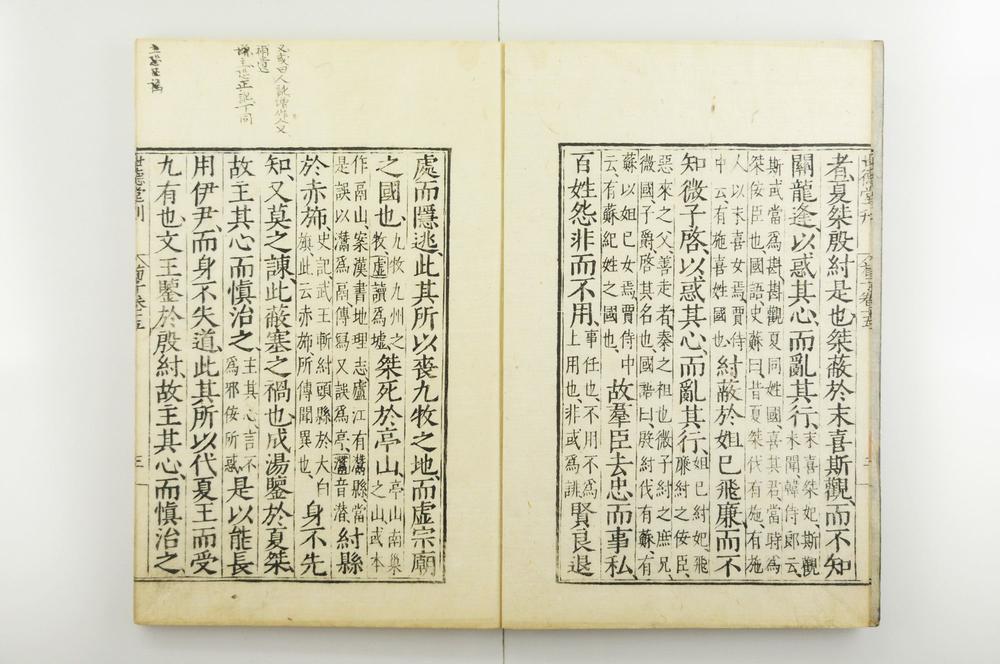 者、夏桀殷紂是也桀蔽於末喜斯觀而不知
關龍逢、以惑其心、而亂其行、末喜桀妃、斯觀
未聞、韓侍郎云、
斯或當爲斟斟觀夏同姓國、喜其君當時爲
桀佞臣也、國語、史蘇曰、昔夏桀伐有施、有施
人以末喜女焉、賈侍
中云、有施喜姓國也、紂蔽於妲己飛廉、而不
知微子啓、以惑其心、而亂其行、妲己紂妃、飛
廉紂之佞臣、
惡來之父、善走者、秦之祖也、微子紂之庶兄、
微國、子爵、啓其名也、國語曰、殷紂伐有蘇、有
蘇以妲己女焉、賈侍中
云、有蘇紀姓之國也、故羣臣去忠而事私、
百姓怨非而不用、事任也、不用、不爲
上用也、非或爲誹賢良退
處而隱逃、此其所以喪九牧之地、而虛宗廟
之國也、九牧九州之
牧虛讀爲墟、桀死於亭山、亭山南巢
之山、或本
作鬲山、案漢書地理志廬江有灊縣當
是誤以灊爲鬲、傳寫又誤爲亭、灊音潛、紂縣
於赤旆、史記、武王斬紂頭縣於大白
旗此云赤旆所傳聞異也、身不先
知、又莫之諫、此蔽塞之禍也、成湯鑒於夏桀
故主其心而慎治之、主其心、言不
爲邪佞所惑、是以能長
用伊尹、而身不失道、此其所以代夏王而受
九有也、文王鑒於殷紂、故主其心、而慎治之、
世德堂刊
三